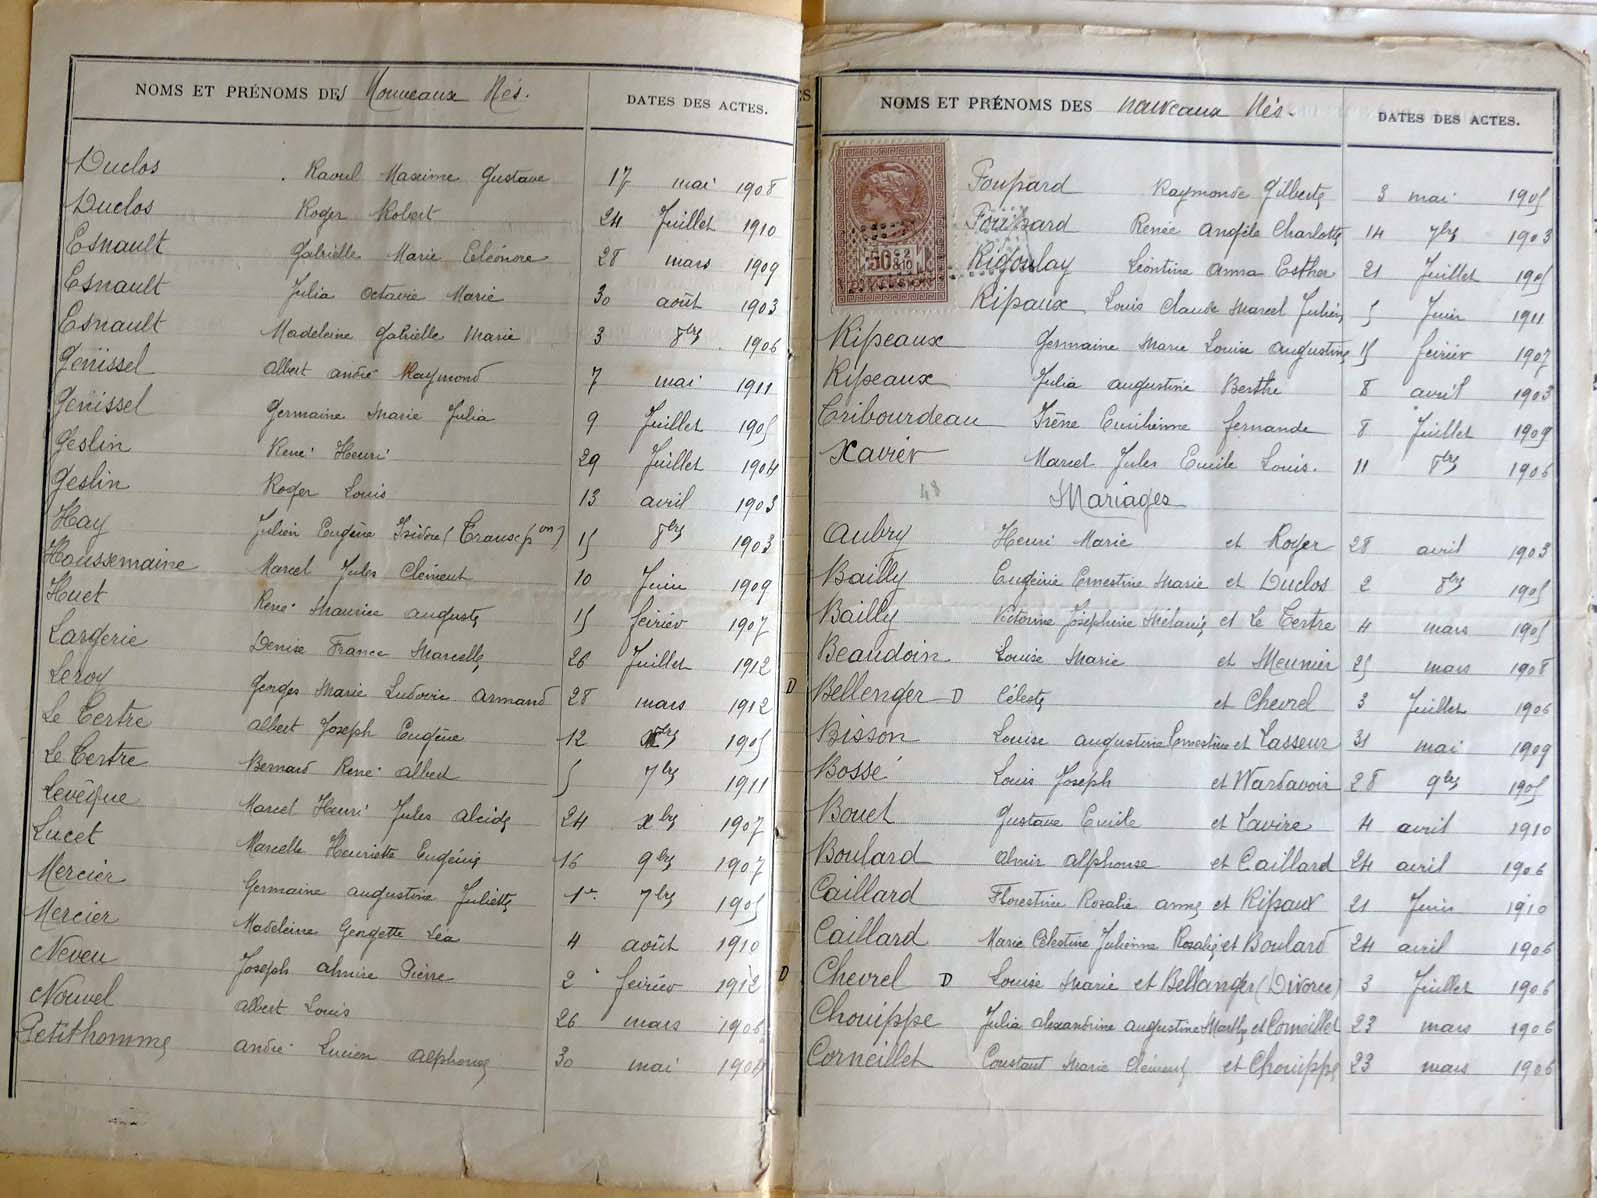 NOMS ET PRÉNOMS DES Nouveaux Nés. DATES DES ACTES.
Duclos Raoul Maxime Gustave 17 mai 1908
Duclos Roger Robert 24 Juillet 1910
Esnault Gabrielle Marie Eléonore 28 mars 1909
Esnault Julia Octavie Marie 30 août 1903
Esnault Madeleine Gabrielle Marie 3 8bre 1906
Genissel Albert André Raymond 7 mai 1911
Genissel Germaine Marie Julia 9 Juillet 1905
Geslin René Henri 29 Juillet 1904
Geslin Roger Louis 13 avril 1903
Hay Julien Eugène Isidore (Transcpon) 15 8bre 1903
Haussemaine Marcel Jules Clément 10 Juin 1909
Huet René Maurice Auguste 15 février 1907
Largerie Denise France Marcelle 26 Juillet 1912
Leroy Georges Marie Ludovic Armand 28 mars 1912
Le Tertre Albert Joseph Eugène 12 1905
Le Tertre Bernard René Albert 5 7bre 1911
Levêque Marcel Henri Jules Alcide 24 xbre 1907
Lucet Marcelle Henriette Eugénie 16 9bre 1907
Mercier Germaine Augustine Juliette 1er 7bre 1905
Mercier Madeleine Georgette Léa 4 août 1910
Neveu Joseph Almire Pierre 2 février 1912
Nouvel Albert Louis 26 mars 1906
Petithomme André Lucien Alphonse 30 mai 1904
NOMS ET PRÉNOMS DES nouveaux Nés. DATES DES ACTES.
Poupard Raymonde Gilberte 3 mai 1905
Poupard Renée Angèle Charlotte 14 7bre 1903
Rigoulay Léontine Anna Esther 21 Juillet 1905
Ripaux Louis Claude Marcel Julien 5 Juin 1911
Ripeaux Germaine Marie Louise Augustine 15 février 1907
Ripeaux Julia Augustine Berthe 8 avril 1903
Tribourdeau Irène Emilienne Fernande 8 Juillet 1909
Xavier Marcel Jules Emile Louis. 11 8bre 1906
48 Mariages
Aubry Henri Marie et Royer 28 avril 1903
Bailly Eugénie Ernestine Marie et Duclos 2 8bre 1905
Bailly Victorine Joséphine Mélanie et Le Tertre 4 mars 1905
Beaudoin Louise Marie et Meunier 25 mars 1908
D Bellenger D Céleste et Chevrel 3 Juillet 1906
Bisson Louise Augustine Ernestine et Lasseur 31 mai 1909
Bossé Louis Joseph et Wardavoir 28 9bre 1905
Bouet Gustave Emile et Lavire 4 avril 1910
Boulard Almir Alphonse et Caillard 24 avril 1906
Caillard Florestine Rosalie Anne et Ripaux 21 Juin 1910
Caillard Marie Célestine Julienne Rosalie et Boulard 24 avril 1906
D Chevrel D Louise Marie et Bellanger (Divorce) 3 Juillet 1906
Chouippe Julia Alexandrine Augustine Marthe et Corneillet 23 mars 1906
Corneillet Constant Marie Clément et Chouippe 23 mars 1906